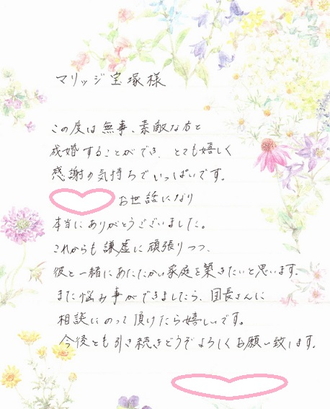 マリッジ宝塚様
この度は無事、素敵な方と
成婚することができ、とても嬉しく
感謝の気持ちでいっぱいです。
お世話になり
本当にありがとうございました。
これからも謙虚に頑張りつつ、
彼と一緒にあたたかい家庭を築きたいと思います。
また悩み事ができましたら、団長さんに
相談にのって頂けたら嬉しいです。
今後とも引き続きどうぞよろしくお願い致します。